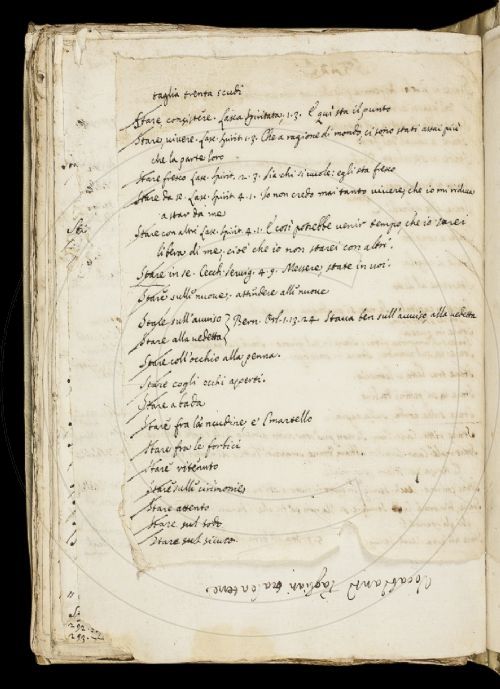 taglia trenta scudi
Stare consistere. Lasca spiritata, 1.3. E qui sta il punto
Stare, vivere. Lasc. Spirit. 1.3. Che a ragione di mondo, ci sono stati assai più
che la parte loro
Stare fresco Lasc. Spirit. 2.3. Sia chi si vuole; egli sta fresco
Stare da se. Lasc. Spirit. 4.1. Io non credo mai tanto vivere, che io mi riduca
a star da me
Stare con altri Lasc. Spirit. 4.1. E così potrebbe venir tempo, che io sarei
libera di me, cioè che io non starei con altri.
Stare in se. Cecch. Servig. 4.9. Messere, state in voi
Stare sulle nuove. attendere alle nuove
Stare sull'avviso } Bern. Orl. 1.13.24 Stava ben sull'avviso alla vedetta
Stare alla vedetta
Stare coll'occhio alla penna.
Stare cogli occhi aperti.
Stare a bada
Stare fra l'ancudine e 'l martello
Stare fra le forbici
Stare ritenuto
Stare sulle cirimonie
Stare attento
Stare sul sodo
Stare sul sicuro.
292
293